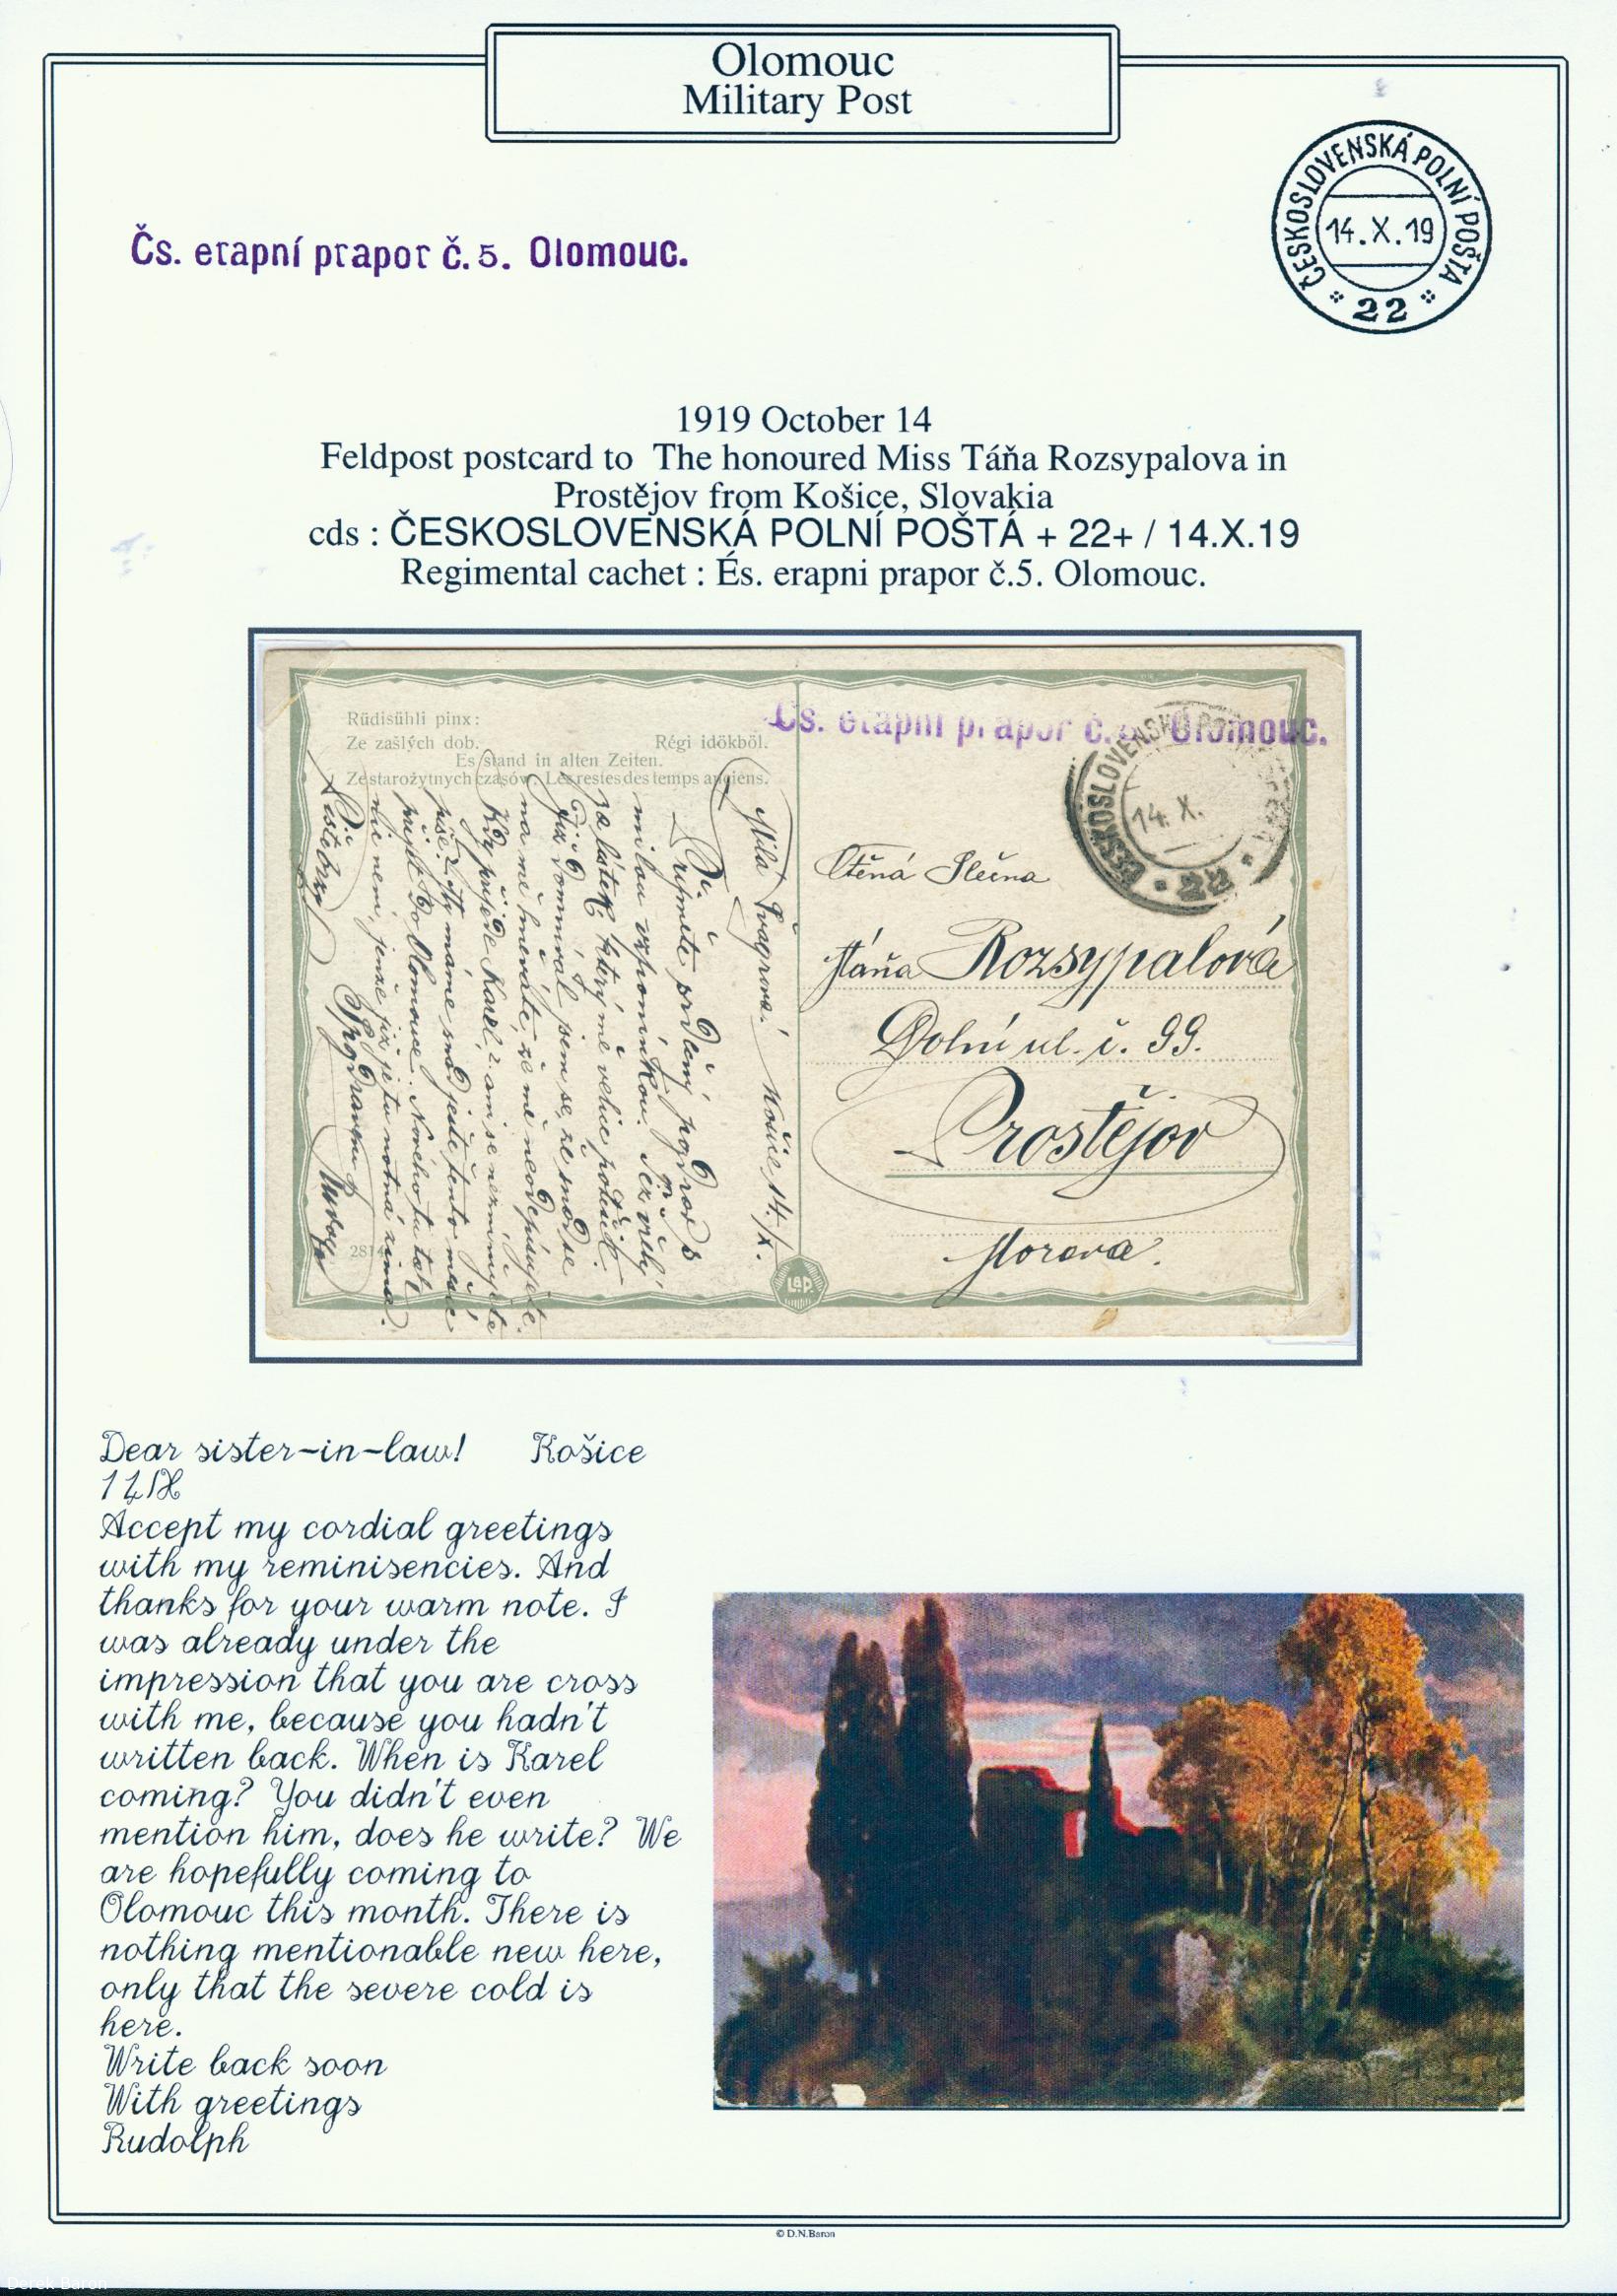 Olomouc
Military Post
Čs. etapní prapor č. 5. Olomouc.
ČESKOSLOVENSKÁ POLNÍ POŠTA
14.X.19
22
1919 October 14
Feldpost postcard to The honoured Miss Táňa Rozsypalova in
Prostějov from Košice, Slovakia
cds : ČESKOSLOVENSKÁ POLNÍ POŠTÁ + 22+ / 14.X.19
Regimental cachet : És. erapni prapor č.5. Olomouc.
Rüdisühli pinx:
Ze zašlých dob. Régi idökböl.
Es stand in alten Zeiten.
Ze starożytnych czasów. Les restes des temps anciens.
Čs. etapní prapor č. Olomouc.
ČESKOSLOVENSKÁ
14. X.
22
Ctěná Slečna
Táňa Rozsypalová
Dolní ul. č. 99.
Prostějov
Morava.
Milá Švagrová! Košice 14./X.
Přijměte srdečný pozdrav s
milou vzpomínkou.
za lístek, který mě velice potěšil.
Již domníval jsem se, že snad se
na mě hněváte, že mě neodepisujete.
Kdy přijede Karel? ani se nezmiňujete
píše? My máme snad ještě tento měsíc
přijet do Olomouce. Nového tu tak
nic není, jenže již je tu notná zima.
L&P.
Dear sister-in-law! Košice
14/X
Accept my cordial greetings
with my reminisencies. And
thanks for your warm note. I
was already under the
impression that you are cross
with me, because you hadn't
written back. When is Karel
coming? You didn't even
mention him, does he write? We
are hopefully coming to
Olomouc this month. There is
nothing mentionable new here,
only that the severe cold is
here.
Write back soon
With greetings
Rudolph
© D.N.Baron
Derek Baron